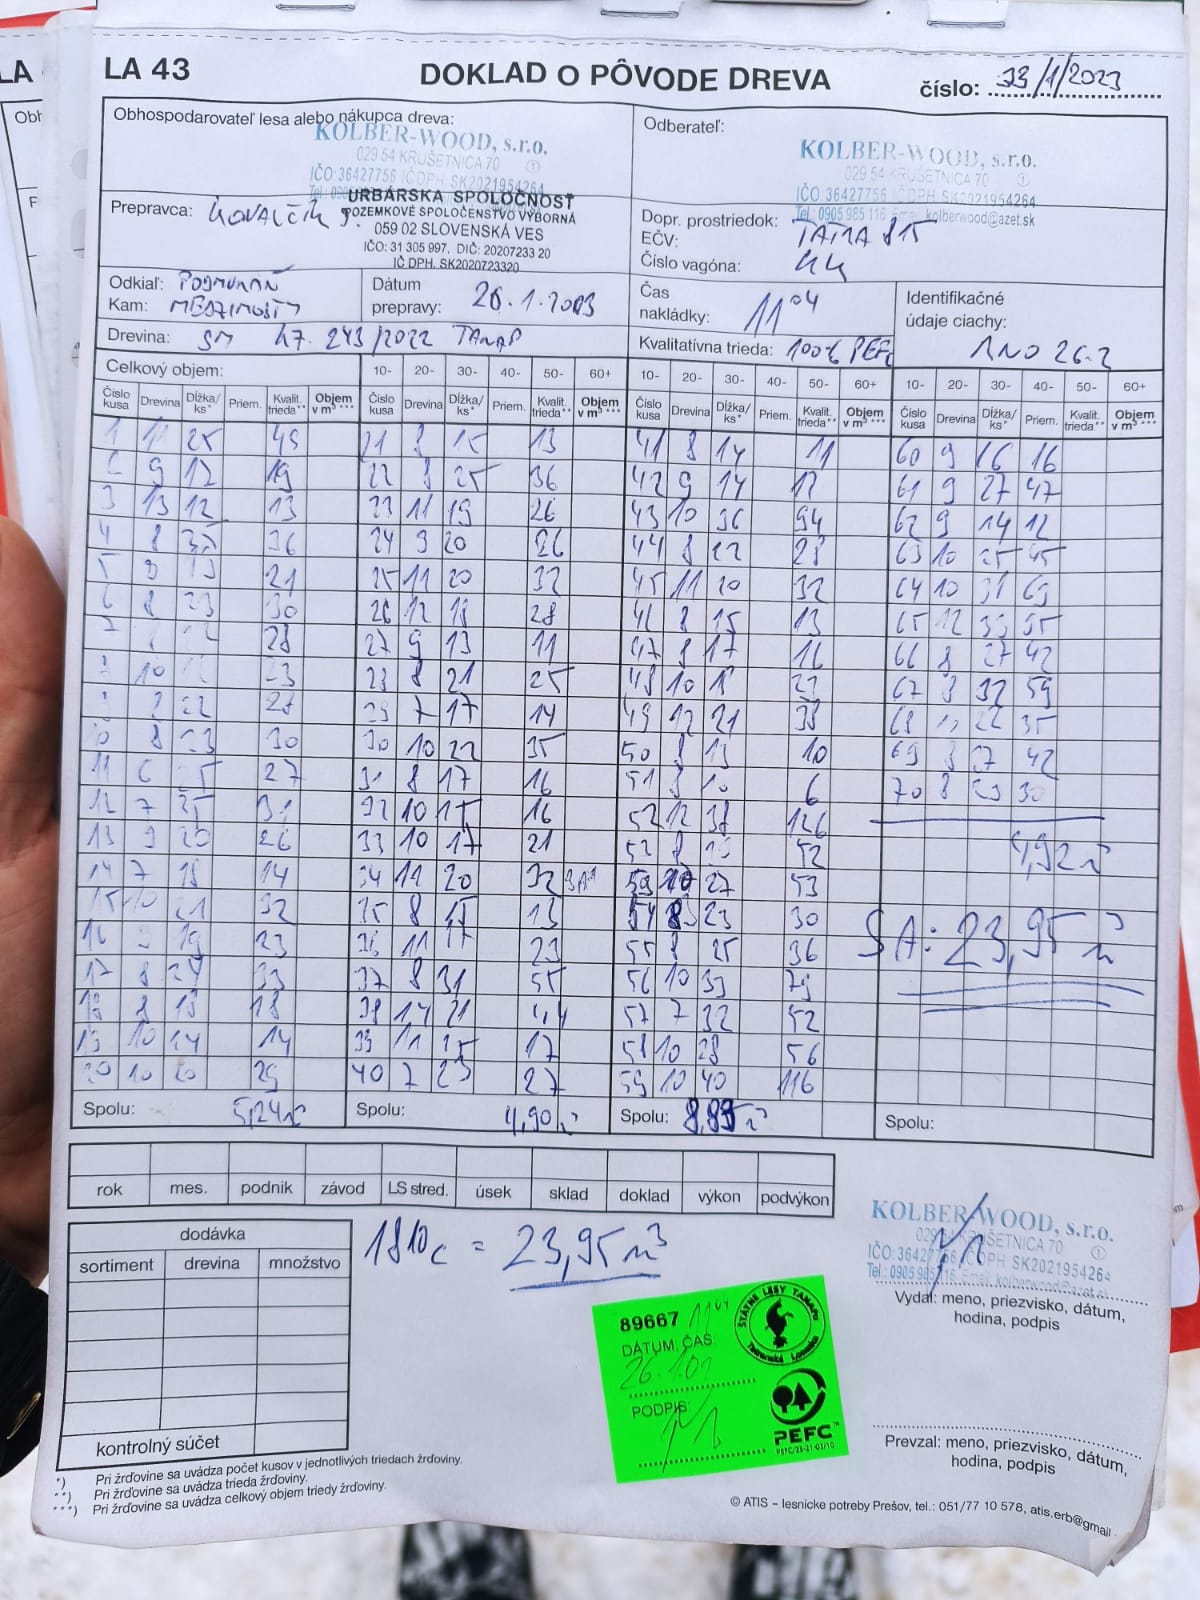 LA 43
DOKLAD O PÔVODE DREVA
číslo: 33/1/2023
Obhospodarovateľ lesa alebo nákupca dreva:
KOLBER-WOOD, s.r.o.
029 54 KRUŠETNICA 70
IČO:36427756 IČ DPH: SK2021954264
URBÁRSKA SPOLOČNOSŤ
POZEMKOVÉ SPOLOČENSTVO VÝBORNÁ
059 02 SLOVENSKÁ VES
IČO: 31 305 997, DIČ: 20207233 20
IČ DPH. SK2020723320
Odberateľ:
KOLBER-WOOD, s.r.o.
029 54 KRUŠETNICA 70
IČO: 36427756 IČ DPH: SK2021954264
Tel.: 0905 985 116 Email: kolberwood@azet.sk
Prepravca: KOVALČÍK J.
Dopr. prostriedok: TATRA 815
EČV:
Číslo vagóna: KK
Odkiaľ:
Kam:
Dátum
prepravy: 26.1.2023
Čas
nakládky: 11 04
Identifikačné
údaje ciachy:
Drevina: SM 47. 243/2022 TANAP
Kvalitatívna trieda: 100% PEFC
Celkový objem:
10- 20- 30- 40- 50- 60+
10- 20- 30- 40- 50- 60+
10- 20- 30- 40- 50- 60+
Číslo kusa Drevina Dĺžka/ ks* Priem. Kvalit. trieda** Objem v m³ ***
Číslo kusa Drevina Dĺžka/ ks* Priem. Kvalit. trieda** Objem v m³ ***
Číslo kusa Drevina Dĺžka/ ks* Priem. Kvalit. trieda** Objem v m³ ***
Číslo kusa Drevina Dĺžka/ ks* Priem. Kvalit. trieda** Objem v m³ ***
1 11 25 49 21 8 15 13 41 8 14 11 60 9 16 16
2 9 12 19 22 8 25 36 42 9 14 12 61 9 27 47
3 13 12 13 23 11 19 26 43 10 36 94 62 9 14 12
4 8 36 24 9 20 26 44 8 22 28 63 10 25 45
5 21 25 11 20 32 45 11 20 32 64 10 31 69
6 8 23 30 26 12 18 28 46 8 15 13 65 12 33 95
28 27 9 13 11 47 8 17 16 66 8 27 42
10 23 28 8 21 25 48 10 18 67 8 32 59
22 28 29 7 17 14 49 12 21 38 68 22 35
10 8 23 30 30 10 22 35 50 8 13 10 69 8 27 42
11 6 25 27 31 8 17 16 51 8 10 6 70 8 23 30
12 7 25 31 32 10 15 16 52 12 38 126
13 9 20 26 33 10 17 21 52 8 52 4,92 m³
14 7 18 14 34 11 20 32 53 10 27 53
15 10 21 32 35 8 15 13 54 8 23 30
16 9 19 23 36 11 17 23 55 8 25 36 SA: 23,95 m³
17 8 24 33 37 8 31 55 56 10 33 79
18 8 18 18 38 14 21 44 57 7 32 52
19 10 14 14 39 11 15 17 58 10 28 56
20 10 20 29 40 7 23 27 59 10 40 116
Spolu: 5,24 m³
Spolu: 4,90 m³
Spolu: 8,89 m³
Spolu:
rok mes. podnik závod LS stred. úsek sklad doklad výkon podvýkon
dodávka
sortiment drevina množstvo
kontrolný súčet
1810c = 23,95 m³
KOLBER-WOOD, s.r.o.
029 54 KRUŠETNICA 70
IČO: 36427756 IČ DPH: SK2021954264
Tel.: 0905 985 116 Email: kolberwood@azet.sk
Vydal: meno, priezvisko, dátum,
hodina, podpis
89667 11 04
DÁTUM: ČAS:
26.1.
PODPIS:
ŠTÁTNE LESY TANAPu
Tatranská Lomnica
PEFC™
PEFC/23-21-03/10
Prevzal: meno, priezvisko, dátum,
hodina, podpis
*) Pri žrďovine sa uvádza počet kusov v jednotlivých triedach žrďoviny.
**) Pri žrďovine sa uvádza trieda žrďoviny.
***) Pri žrďovine sa uvádza celkový objem triedy žrďoviny.
© ATIS – lesnicke potreby Prešov, tel.: 051/77 10 578, atis.erb@gmail